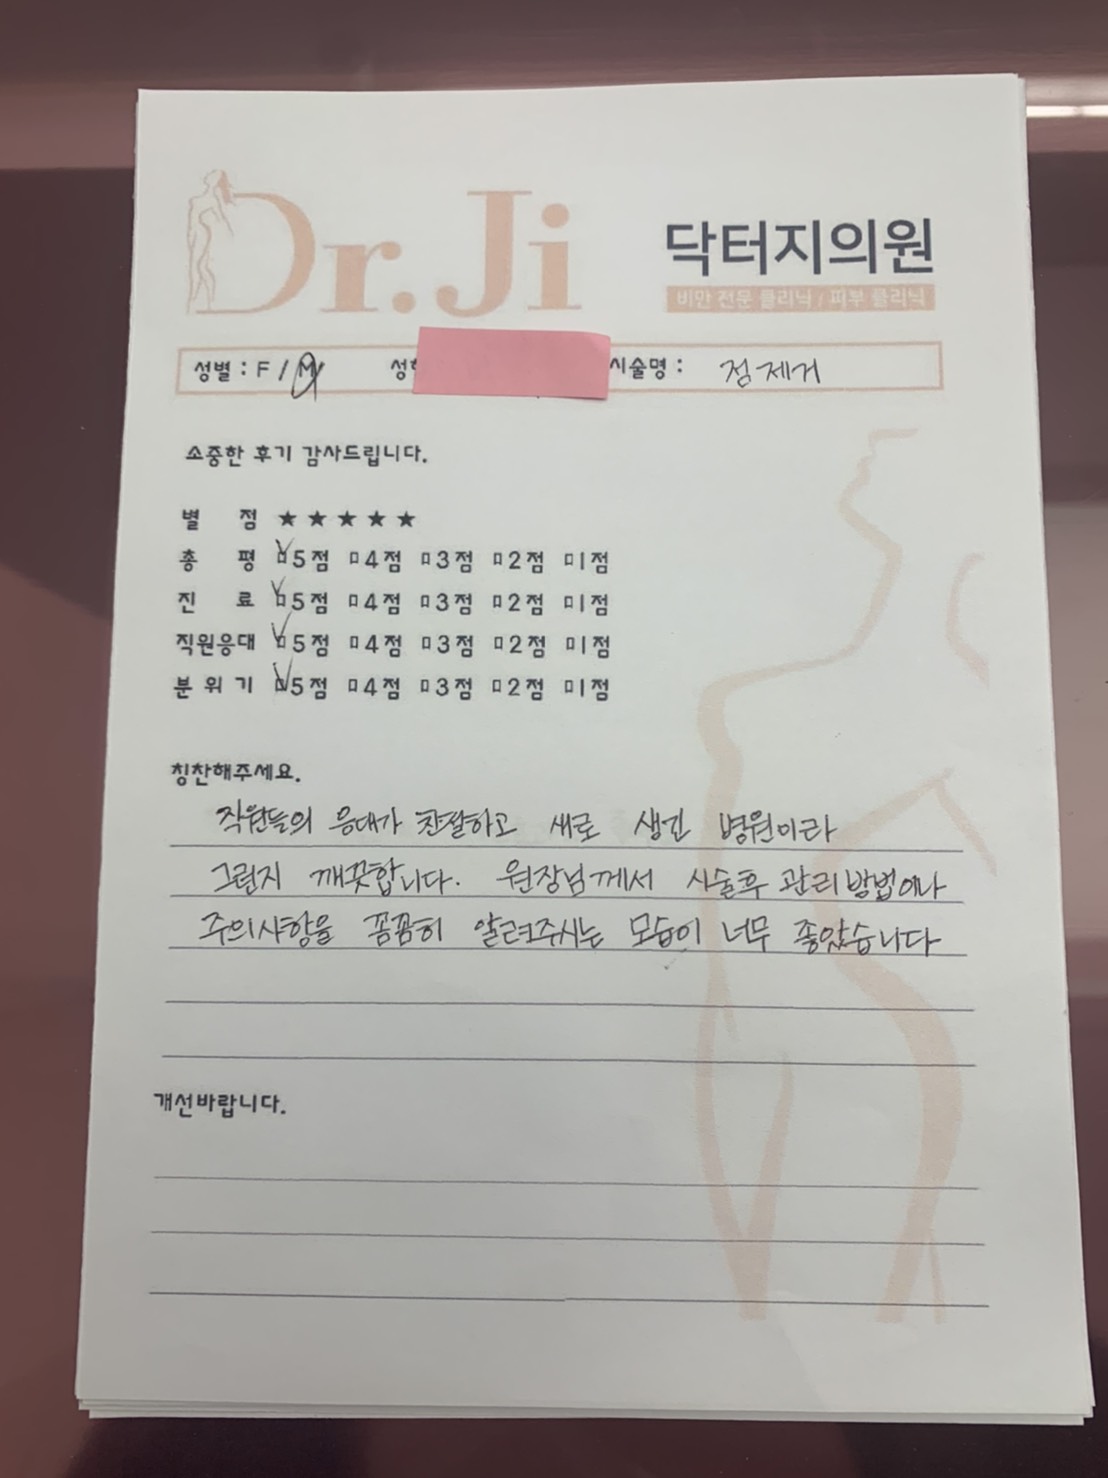 Dr.Ji
닥터지의원
비만 전문 클리닉 / 피부 클리닉
성별 : F / M 성 시술명 : 점제거
소중한 후기 감사드립니다.
별 점 ★ ★ ★ ★ ★
총 평 □5점 □4점 □3점 □2점 □1점
진 료 □5점 □4점 □3점 □2점 □1점
직원응대 □5점 □4점 □3점 □2점 □1점
분위기 □5점 □4점 □3점 □2점 □1점
칭찬해주세요.
직원들의 응대가 친절하고 새로 생긴 병원이라
그런지 깨끗합니다. 원장님께서 시술후 관리방법이나
주의사항을 꼼꼼히 알려주시는 모습이 너무 좋았습니다
개선바랍니다.